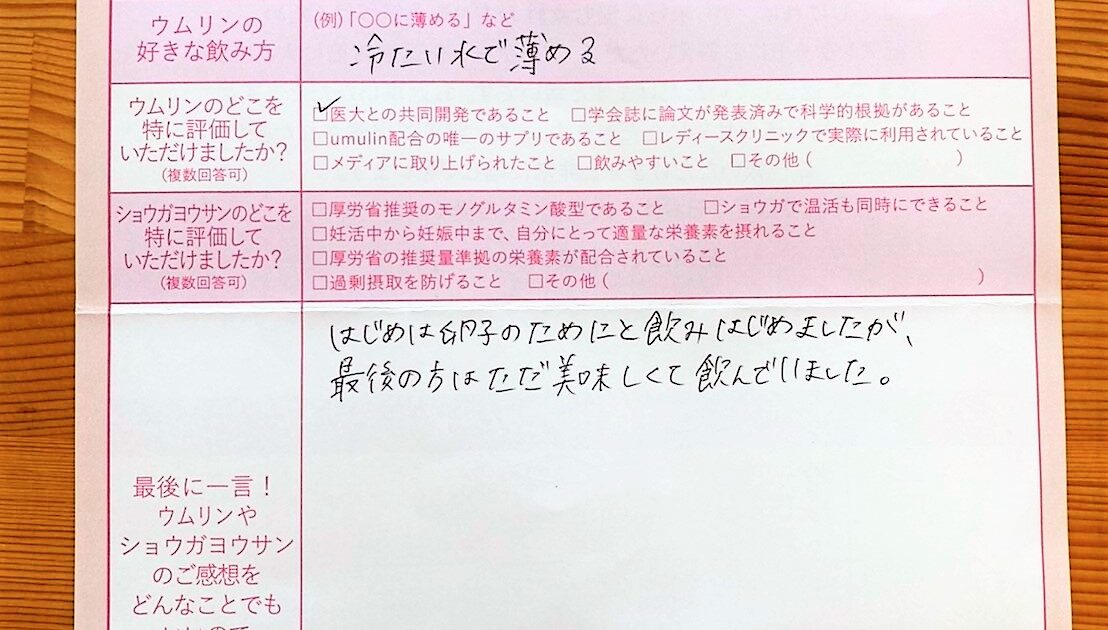 ウムリンの
好きな飲み方
(例)「〇〇に薄める」など
冷たい水で薄める
ウムリンのどこを
特に評価して
いただけましたか?
(複数回答可)
☑医大との共同開発であること □学会誌に論文が発表済みで科学的根拠があること
□umulin配合の唯一のサプリであること □レディースクリニックで実際に利用されていること
□メディアに取り上げられたこと □飲みやすいこと □その他 ( )
ショウガヨウサンのどこを
特に評価して
いただけましたか?
(複数回答可)
□厚労省推奨のモノグルタミン酸型であること □ショウガで温活も同時にできること
□妊活中から妊娠中まで、自分にとって適量な栄養素を摂れること
□厚労省の推奨量準拠の栄養素が配合されていること
□過剰摂取を防げること □その他 ( )
はじめは卵子のためにと飲みはじめましたが、
最後の方はただ美味しくて飲んでいました。
最後に一言!
ウムリンや
ショウガヨウサン
のご感想を
どんなことでも